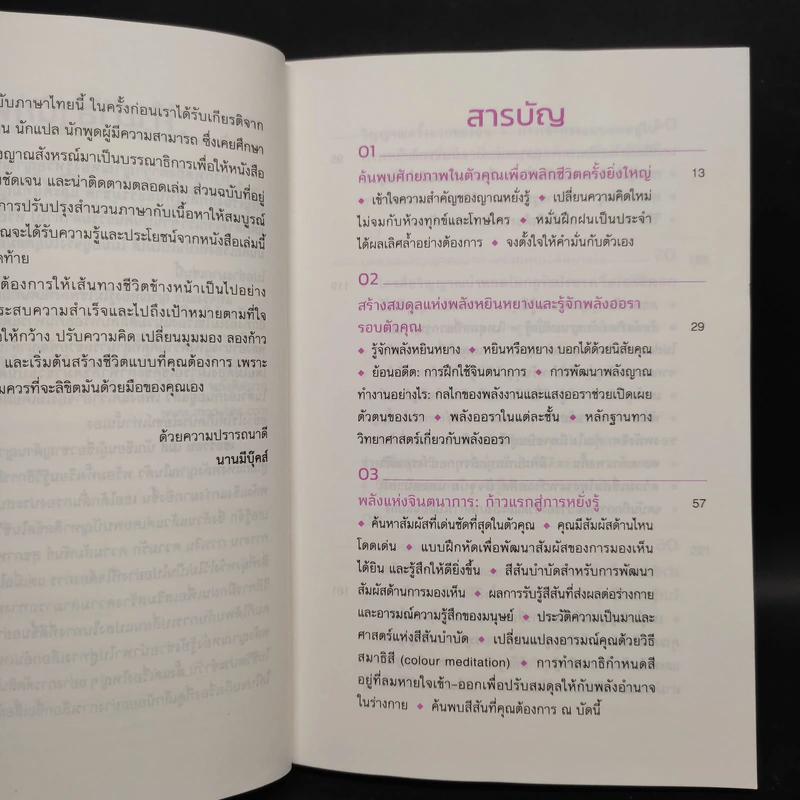 บับภาษาไทยนี้ ในครั้งก่อนเราได้รับเกียรติจาก
น นักแปล นักพูดผู้มีความสามารถ ซึ่งเคยศึกษา
งญาณสังหรณ์มาเป็นบรรณาธิการเพื่อให้หนังสือ
ชัดเจน และน่าติดตามตลอดเล่ม ส่วนฉบับที่อยู่
การปรับปรุงสำนวนภาษากับเนื้อหาให้สมบูรณ์
ณจะได้รับความรู้และประโยชน์จากหนังสือเล่มนี้
ดท้าย
ต้องการให้เส้นทางชีวิตข้างหน้าเป็นไปอย่าง
ระสบความสำเร็จและไปถึงเป้าหมายตามที่ใจ
อให้กว้าง ปรับความคิด เปลี่ยนมุมมอง ลองก้าว
และเริ่มต้นสร้างชีวิตแบบที่คุณต้องการ เพราะ
มควรที่จะลิขิตมันด้วยมือของคุณเอง
ด้วยความปรารถนาดี
นานมีบุ๊คส์
สารบัญ
01
ค้นพบศักยภาพในตัวคุณเพื่อพลิกชีวิตครั้งยิ่งใหญ่ 13
◆ เข้าใจความสำคัญของญาณหยั่งรู้ ◆ เปลี่ยนความคิดใหม่
ไม่จมกับห้วงทุกข์และโทษใคร ◆ หมั่นฝึกฝนเป็นประจำ
ได้ผลเลิศล้ำอย่างต้องการ ◆ จงตั้งใจให้คำมั่นกับตัวเอง
02
สร้างสมดุลแห่งพลังหยินหยางและรู้จักพลังออรา
รอบตัวคุณ 29
◆ รู้จักพลังหยินหยาง ◆ หยินหรือหยาง บอกได้ด้วยนิสัยคุณ
◆ ย้อนอดีต: การฝึกใช้จินตนาการ ◆ การพัฒนาพลังญาณ
ทำงานอย่างไร: กลไกของพลังงานและแสงออราช่วยเปิดเผย
ตัวตนของเรา ◆ พลังออราในแต่ละชั้น ◆ หลักฐานทาง
วิทยาศาสตร์เกี่ยวกับพลังออรา
03
พลังแห่งจินตนาการ: ก้าวแรกสู่การหยั่งรู้ 57
◆ ค้นหาสัมผัสที่เด่นชัดที่สุดในตัวคุณ ◆ คุณมีสัมผัสด้านไหน
โดดเด่น ◆ แบบฝึกหัดเพื่อพัฒนาสัมผัสของการมองเห็น
ได้ยิน และรู้สึกให้ดียิ่งขึ้น ◆ สีสันบำบัดสำหรับการพัฒนา
สัมผัสด้านการมองเห็น ◆ ผลการรับรู้สีสันที่ส่งผลต่อร่างกาย
และอารมณ์ความรู้สึกของมนุษย์ ◆ ประวัติความเป็นมาและ
ศาสตร์แห่งสีสันบำบัด ◆ เปลี่ยนแปลงอารมณ์คุณด้วยวิธี
สมาธิสี (colour meditation) ◆ การทำสมาธิกำหนดสี
อยู่ที่ลมหายใจเข้า-ออกเพื่อปรับสมดุลให้กับพลังอำนาจ
ในร่างกาย ◆ ค้นพบสีสันที่คุณต้องการ ณ บัดนี้